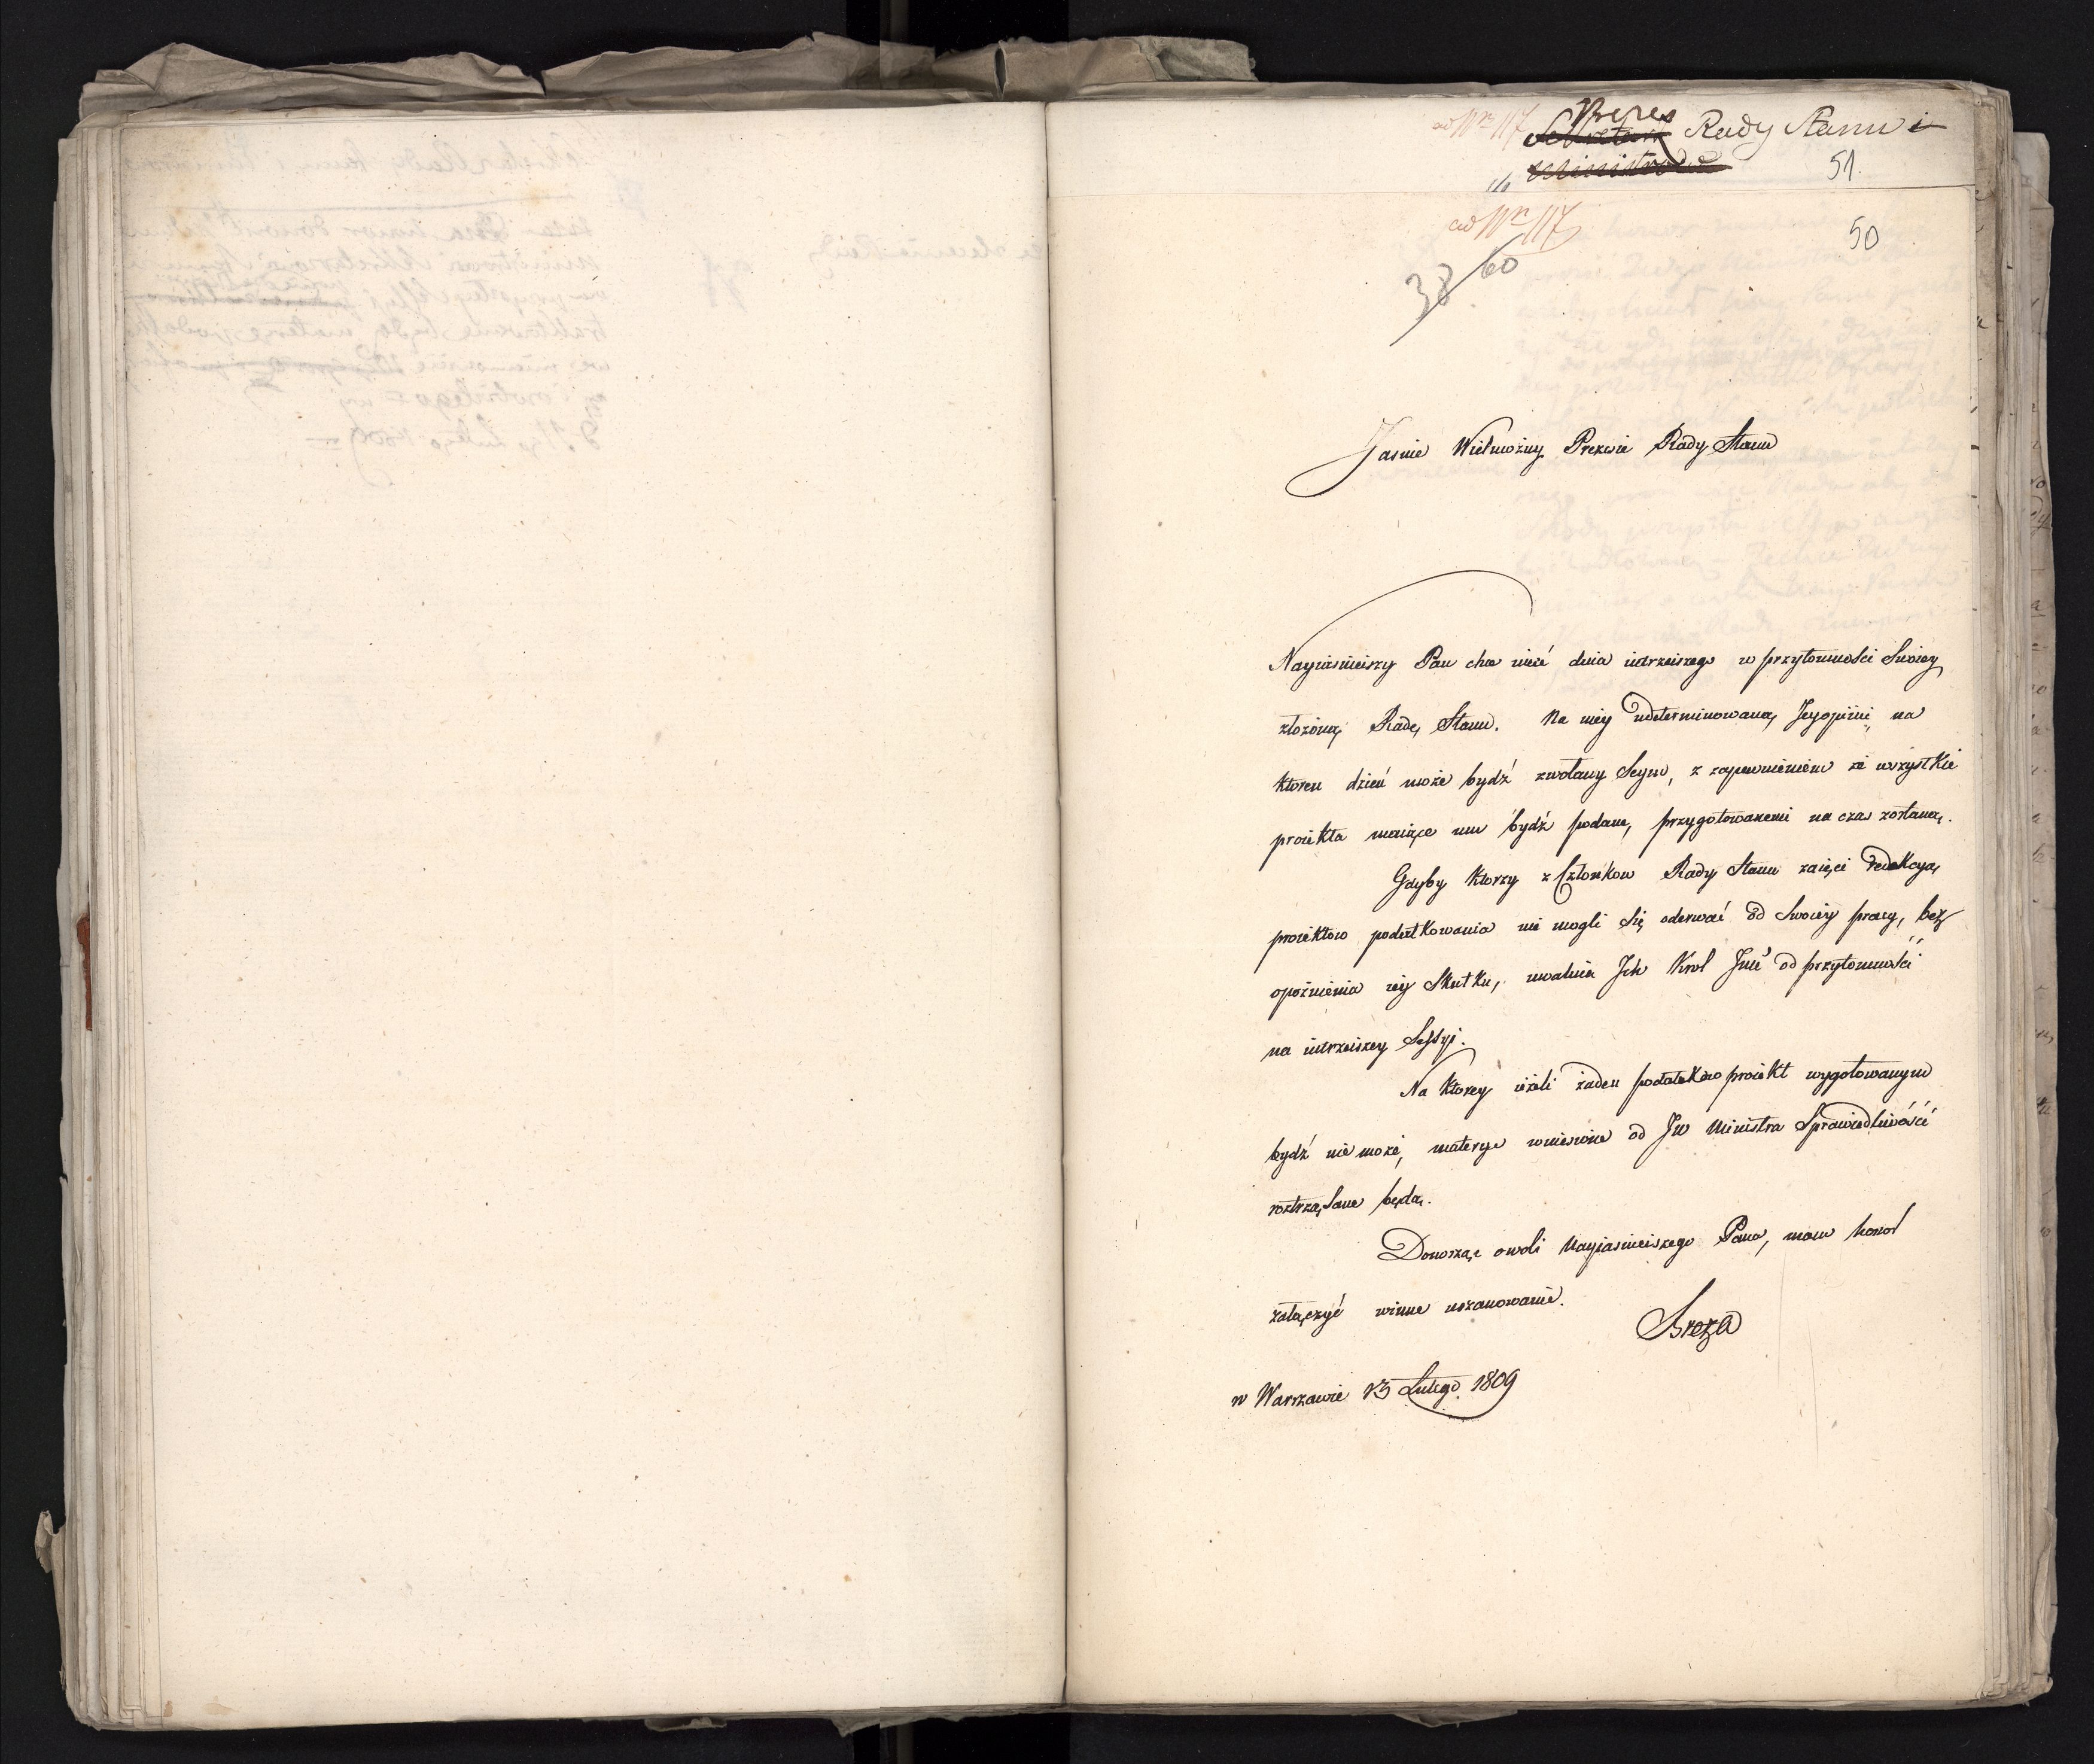 ad Nr 117
Prezes
Sekretarz Rady Stanu i
Ministrów
51.
ad Nr 117
50
38/60
Jasnie Wielmożny Prezesie Rady Stanu
Nayiasnieiszy Pan chce mieć dnia iutrzeiszego w przytomności Swoiey
złożoną Radę Stanu. Na niey udeterminowaną Jey opinii, na
ktoren dzień może bydź zwołany Seym, z zapewnieniem że wszystkie
proiekta maiące mu bydź podane, przygotowanemi na czas zostaną.
Gdyby ktorzy z Członkow Rady Stanu zaięci redakcyą
proiektow podatkowania nie mogli się oderwać od Swoiey pracy, bez
opoźnienia iey Skutku, uwalnia Ich Krol Jmć od przytomności
na iutrzeiszey Sessyi.
Na ktorey ieżeli żaden podatekow proiekt wygotowanym
bydź nie może, materye wniesione od JW Ministra Sprawiedliwości
roztrząsane będą.
Donosząc o woli Nayiasnieiszego Pana, mam honor
załączyć winne uszanowanie.
Breza
w Warszawie 13 Lutego 1809